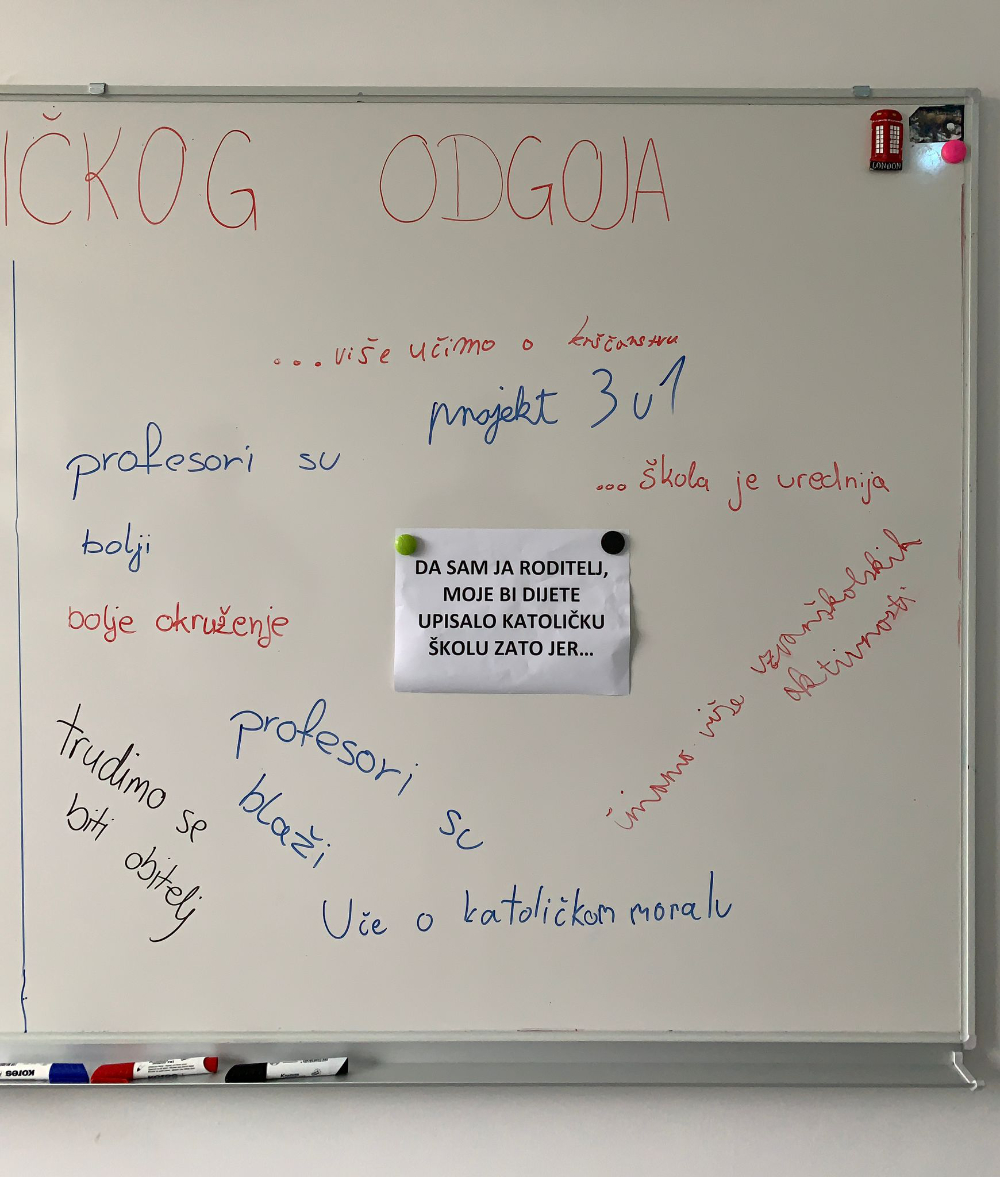 IČKOG ODGOJA
LONDON
...više učimo o kršćanstvu
projekt 3 u 1
profesori su
bolji
...škola je urednija
DA SAM JA RODITELJ,
MOJE BI DIJETE
UPISALO KATOLIČKU
ŠKOLU ZATO JER...
bolje okruženje
imamo više izvanškolskih
aktivnosti
trudimo se
biti obitelj
profesori su
blaži
Uče o katoličkom moralu
kores